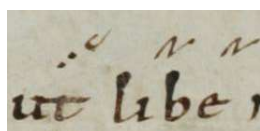 ut libe